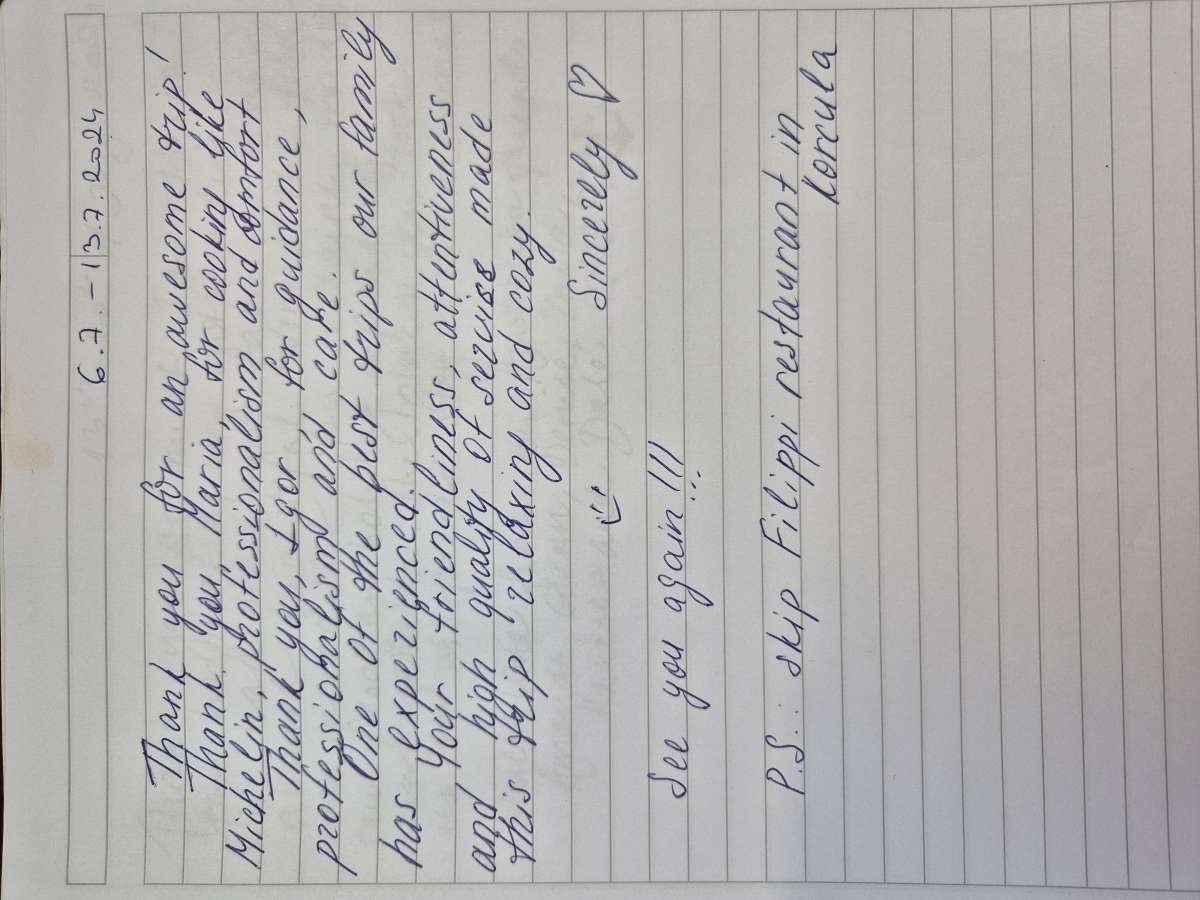 6.7. - 13.7.2024
Thank you for an awesome trip!
Thank you, Maria, for cooking like
Michelin, professionalism and comfort
Thank you, Igor, for guidance,
professionalism and care.
One of the best trips our family
has experienced.
Your friendliness, attentiveness
and high quality of servise made
this trip relaxing and cozy.
Sincerely ♡
See you again!!!
P.S.: skip Filippi restaurant in
Korcula